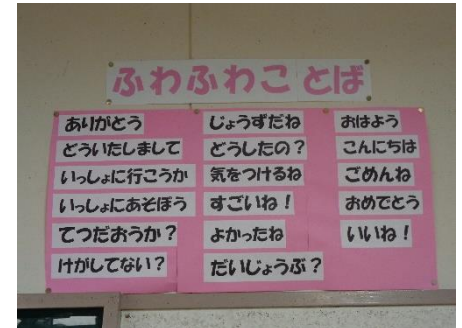 ふわふわことば
ありがとう
どういたしまして
いっしょに行こうか
いっしょにあそぼう
てつだおうか？
けがしてない？
じょうずだね
どうしたの？
気をつけるね
すごいね！
よかったね
だいじょうぶ？
おはよう
こんにちは
ごめんね
おめでとう
いいね！